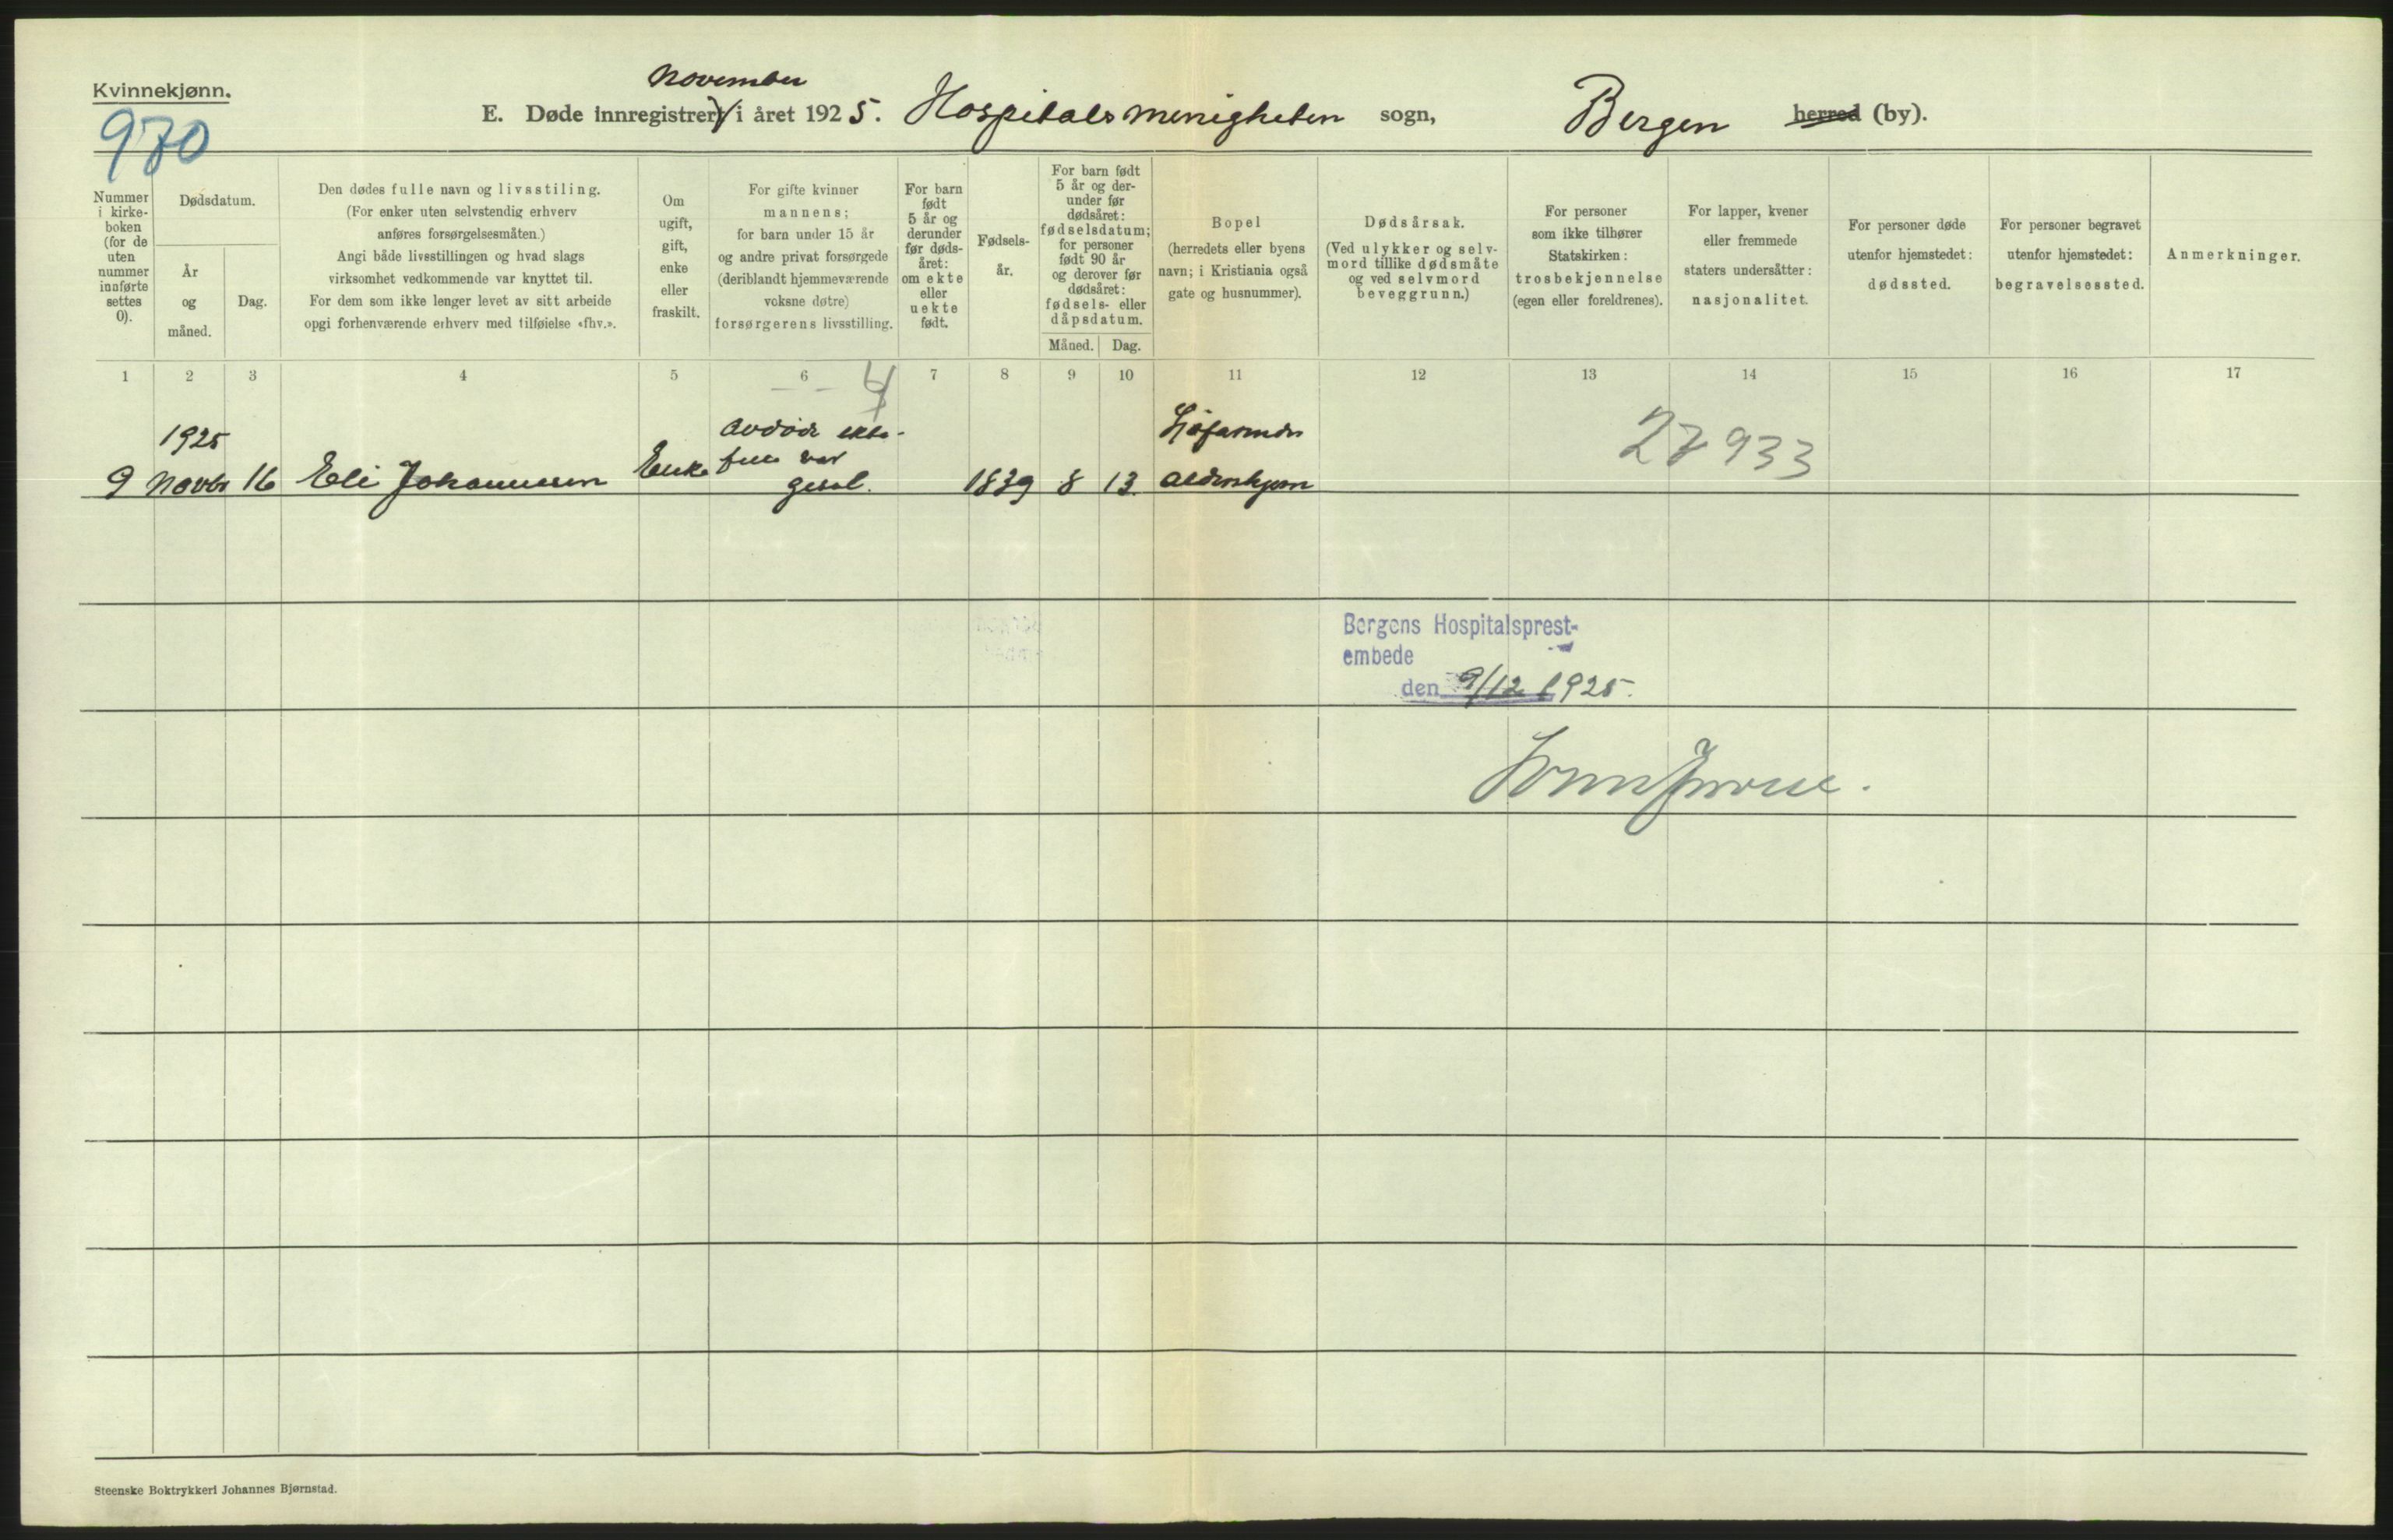 Kvinnekjønn.
970
November
E. Døde innregistrert i året 1925. Hospitalsmenigheten sogn, Bergen herred (by).
Nummer i kirke-boken (for de uten nummer innførte settes 0).
Dødsdatum.
År og måned.
Dag.
Den dødes fulle navn og livsstiling.
(For enker uten selvstendig erhverv
anføres forsørgelsesmåten.)
Angi både livsstillingen og hvad slags
virksomhet vedkommende var knyttet til.
For dem som ikke lenger levet av sitt arbeide
opgi forhenværende erhverv med tilføielse «fhv.».
Om
ugift,
gift,
enke
eller
fraskilt.
For gifte kvinner
mannens;
for barn under 15 år
og andre privat forsørgede
(deriblandt hjemmeværende
voksne døtre)
forsørgerens livsstilling.
For barn
født
5 år og
derunder
før døds-
året:
om ekte
eller
uekte
født.
Fødsels-
år.
For barn født
5 år og der-
under før
dødsåret:
fødselsdatum;
for personer
født 90 år
og derover før
dødsåret:
fødsels- eller
dåpsdatum.
Måned. Dag.
Bopel
(herredets eller byens
navn; i Kristiania også
gate og husnummer).
Dødsårsak.
(Ved ulykker og selv-
mord tillike dødsmåte
og ved selvmord
beveggrunn.)
For personer
som ikke tilhører
Statskirken:
trosbekjennelse
(egen eller foreldrenes).
For lapper, kvener
eller fremmede
staters undersåtter:
nasjonalitet.
For personer døde
utenfor hjemstedet:
dødssted.
For personer begravet
utenfor hjemstedet:
begravelsessted.
Anmerkninger.
1 2 3 4 5 6 7 8 9 10 11 12 13 14 15 16 17
1925
9 Novbr 16 Eli Johannessen Enke
avdøde ekte-
felle var
gesel.
1839 8 13
aldershjem
27933
Bergens Hospitalsprest-
embede
den 9/12 1925.
Steenske Boktrykkeri Johannes Bjørnstad.